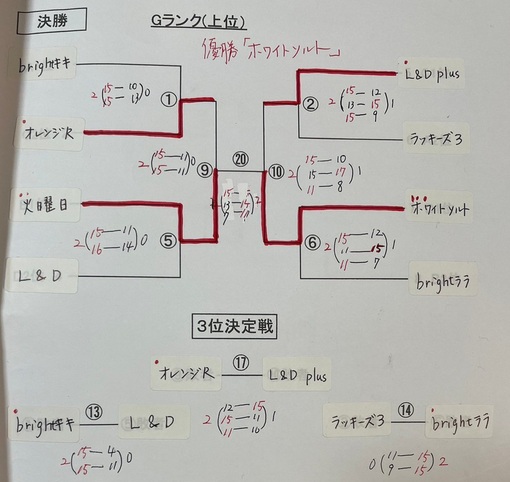 決勝 Gランク(上位)
優勝「ホワイトソルト」
brightキキ
オレンジR
火曜日
L & D
L&D plus
ラッキーズ3
ホワイトソルト
brightララ
①
2 (15—10 15—13) 0
②
2 (15—12 13—15 15—9) 1
⑨
2 (15—11 15—11) 0
⑳
⑩
2 (15—10 15—17 11—8) 1
⑤
2 (15—11 16—14) 0
⑥
2 (15—12 11—15 11—7) 1
3位決定戦
オレンジR ⑰ L&D plus
2 (12—15 15—11 11—10) 1
brightキキ ⑬ L & D
2 (15—4 15—11) 0
ラッキーズ3 ⑭ brightララ
0 (11—15 9—15) 2